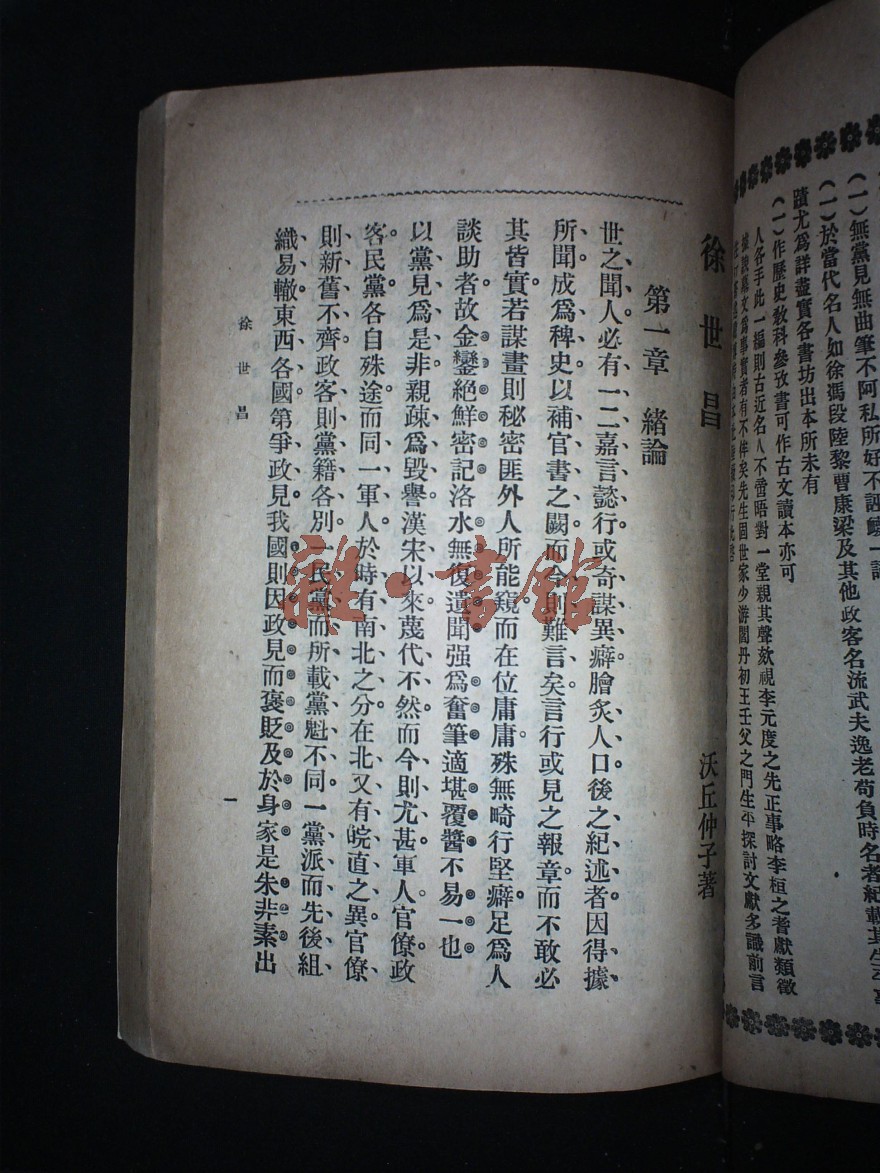 (一)無黨見無曲筆不阿私所好不誣
(一)於當代名人如徐馮段陸黎曹康梁及其他政客名流武夫逸老苟負時名者紀載其生平事
蹟尤爲詳盡實各書坊出本所未有
(一)作歷史敎科參攷書可作古文讀本亦可
人各手此一編則古近名人不啻晤對一堂親其聲欬視李元度之先正事略李桓之耆獻類徵
文爲事實者有不侔矣先生固世家少游閻丹初王壬父之門生平探討文獻多識前言
徐世昌
沃丘仲子著
第一章 緒論
世之聞人必有一二嘉言懿行或奇謀異癖膾炙人口後之紀述者因得據
所聞成爲稗史以補官書之闕而今則難言矣言行或見之報章而不敢必
其皆實若謀畫則秘密匪外人所能窺而在位庸庸殊無畸行堅癖足爲人
談助者故金鑾絕鮮密記洛水無復遺聞强爲奮筆適堪覆醬不易一也
以黨見爲是非親疎爲毀譽漢宋以來蔑代不然而今則尤甚軍人官僚政
客民黨各自殊途而同一軍人於時有南北之分在北又有皖直之異官僚
則新舊不齊政客則黨籍各別一民黨而所載黨魁不同一黨派而先後組
織易轍東西各國第爭政見我國則因政見而褒貶及於身家是朱非素出
徐世昌
一
雜·書館